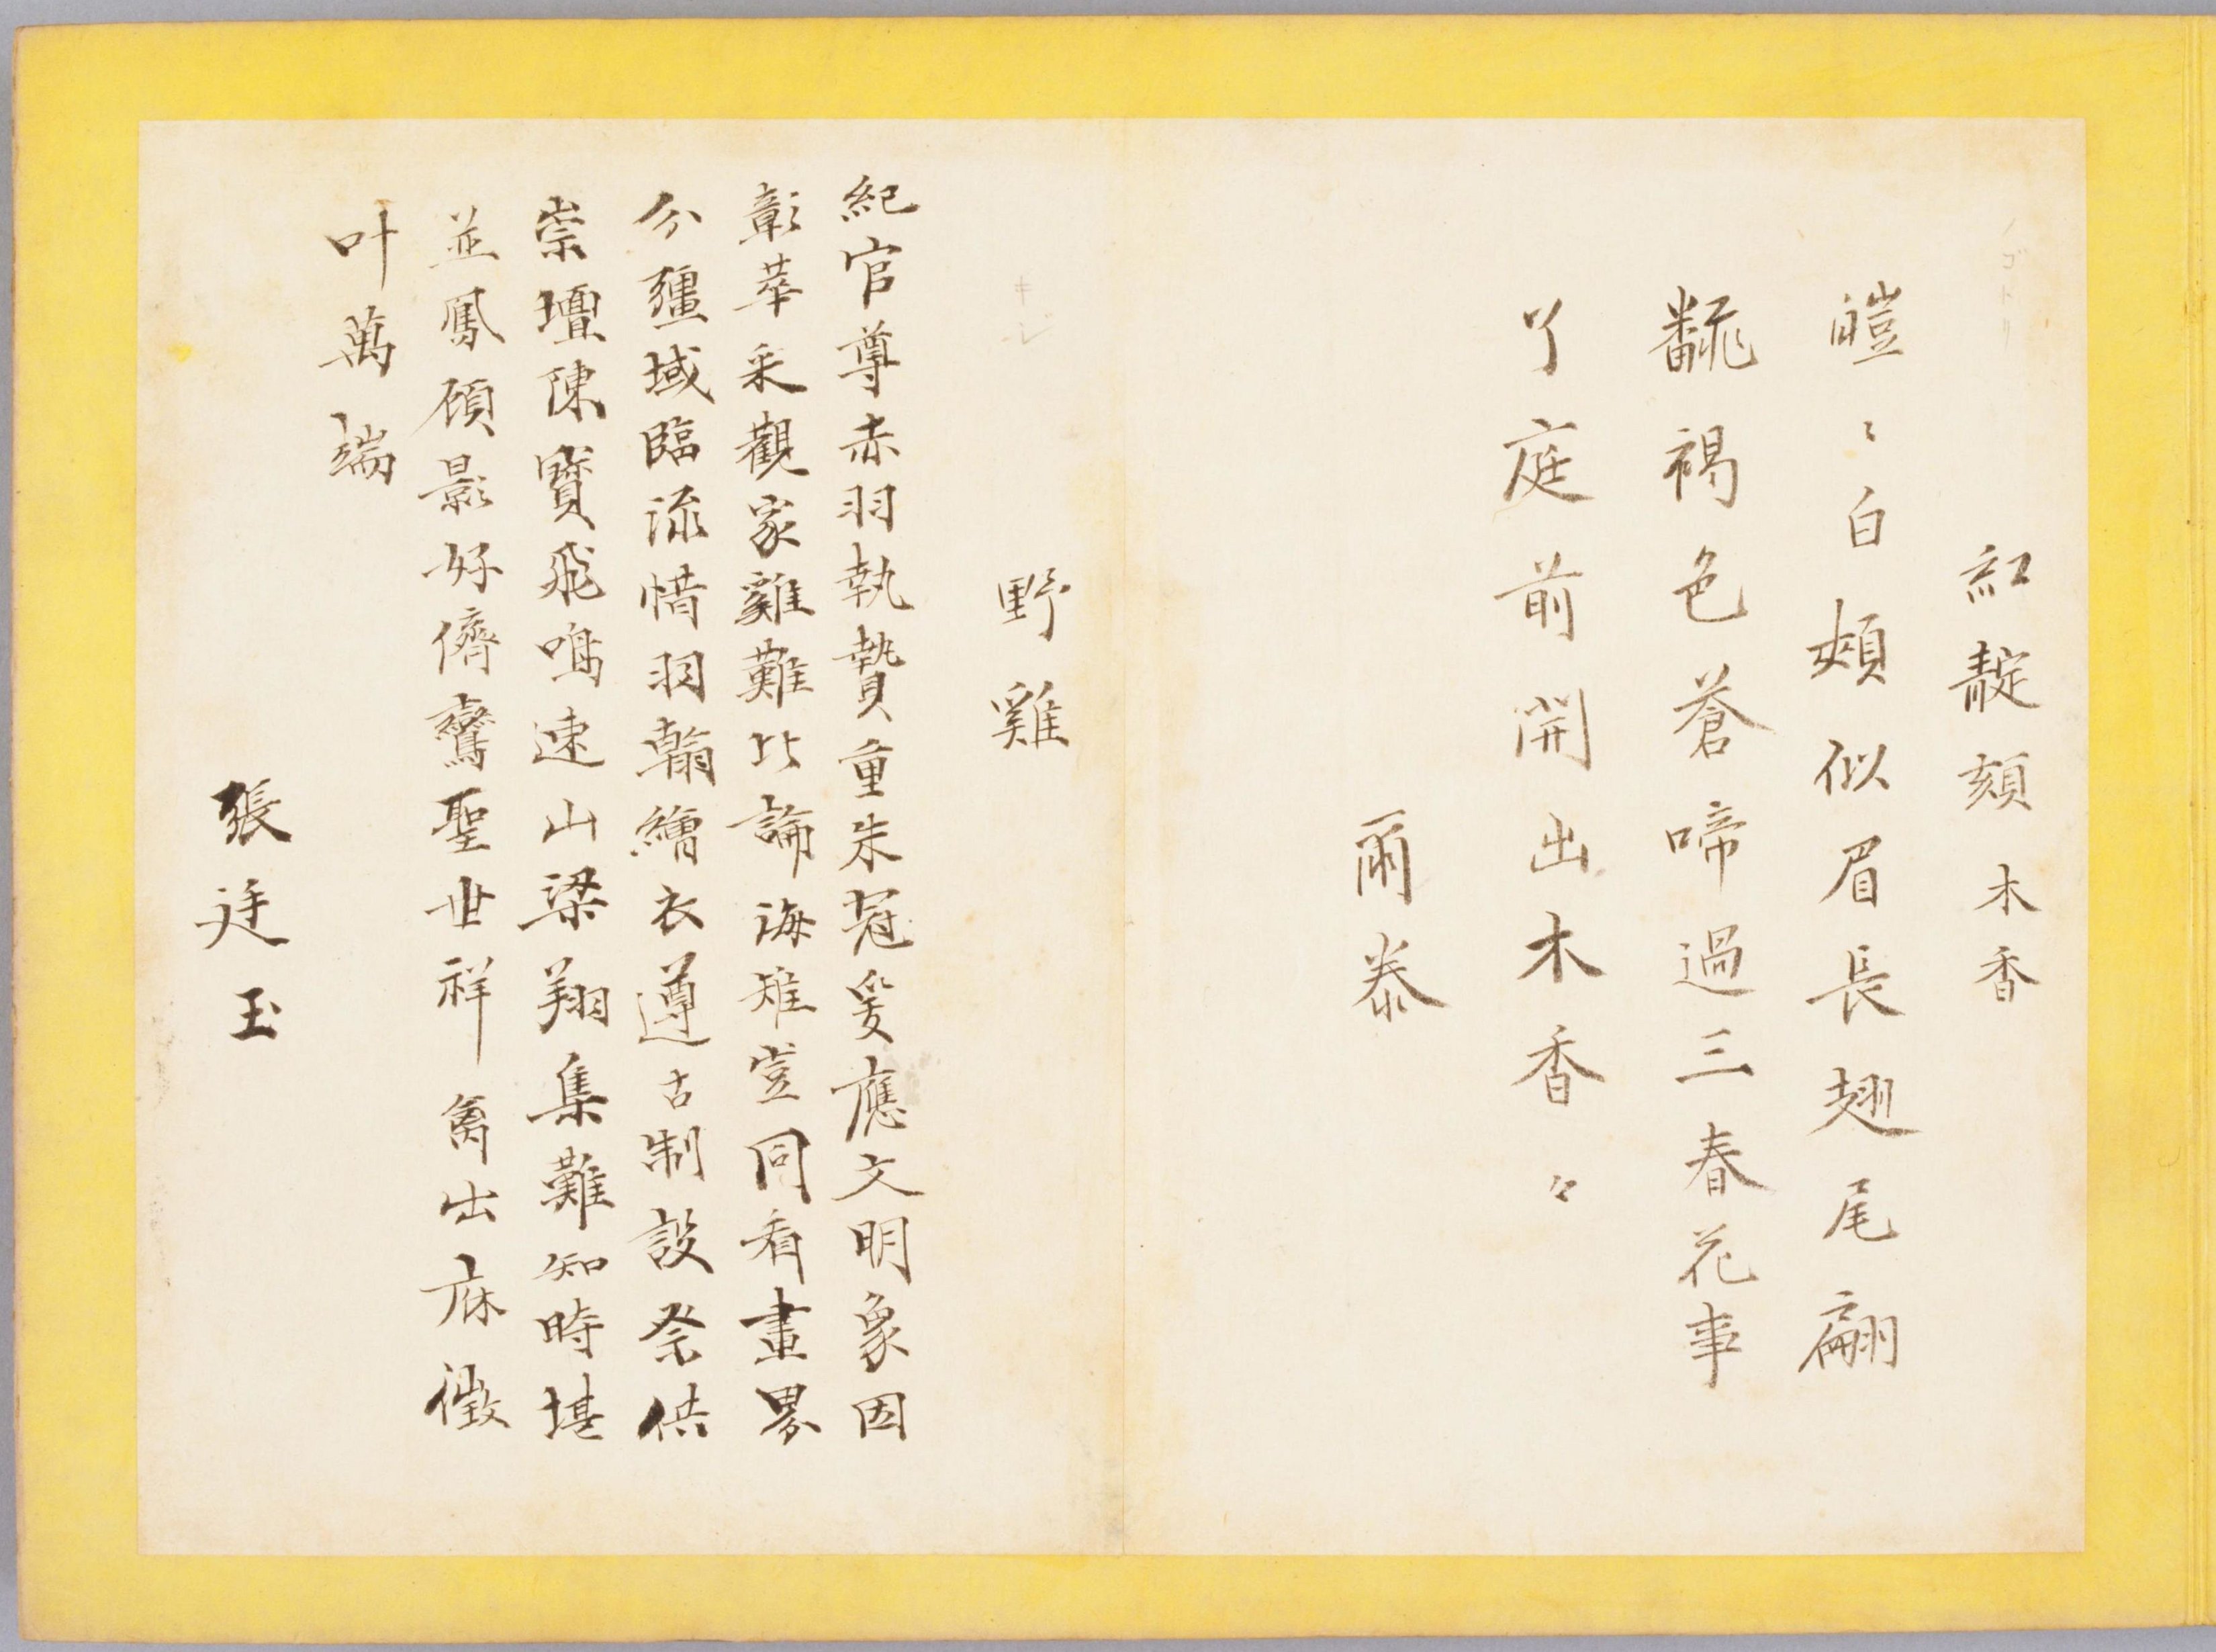 ノゴトリ
紅靛頦 木香
皚〻白頰似眉長翅尾翩
飜褐色蒼啼過三春花事
了庭前開出木香々
爾泰
キジ
野雞
紀官尊赤羽執贄重朱冠爰應文明象因
彰萃采觀家雞難比論海雉豈同看畫界
分疆域臨流惜羽翰繪衣遵古制設祭供
崇壇陳寶飛鳴速山梁翔集難知時堪
並鳳顧影好儕鸞聖世祥禽出庥徵
叶萬端
張廷玉